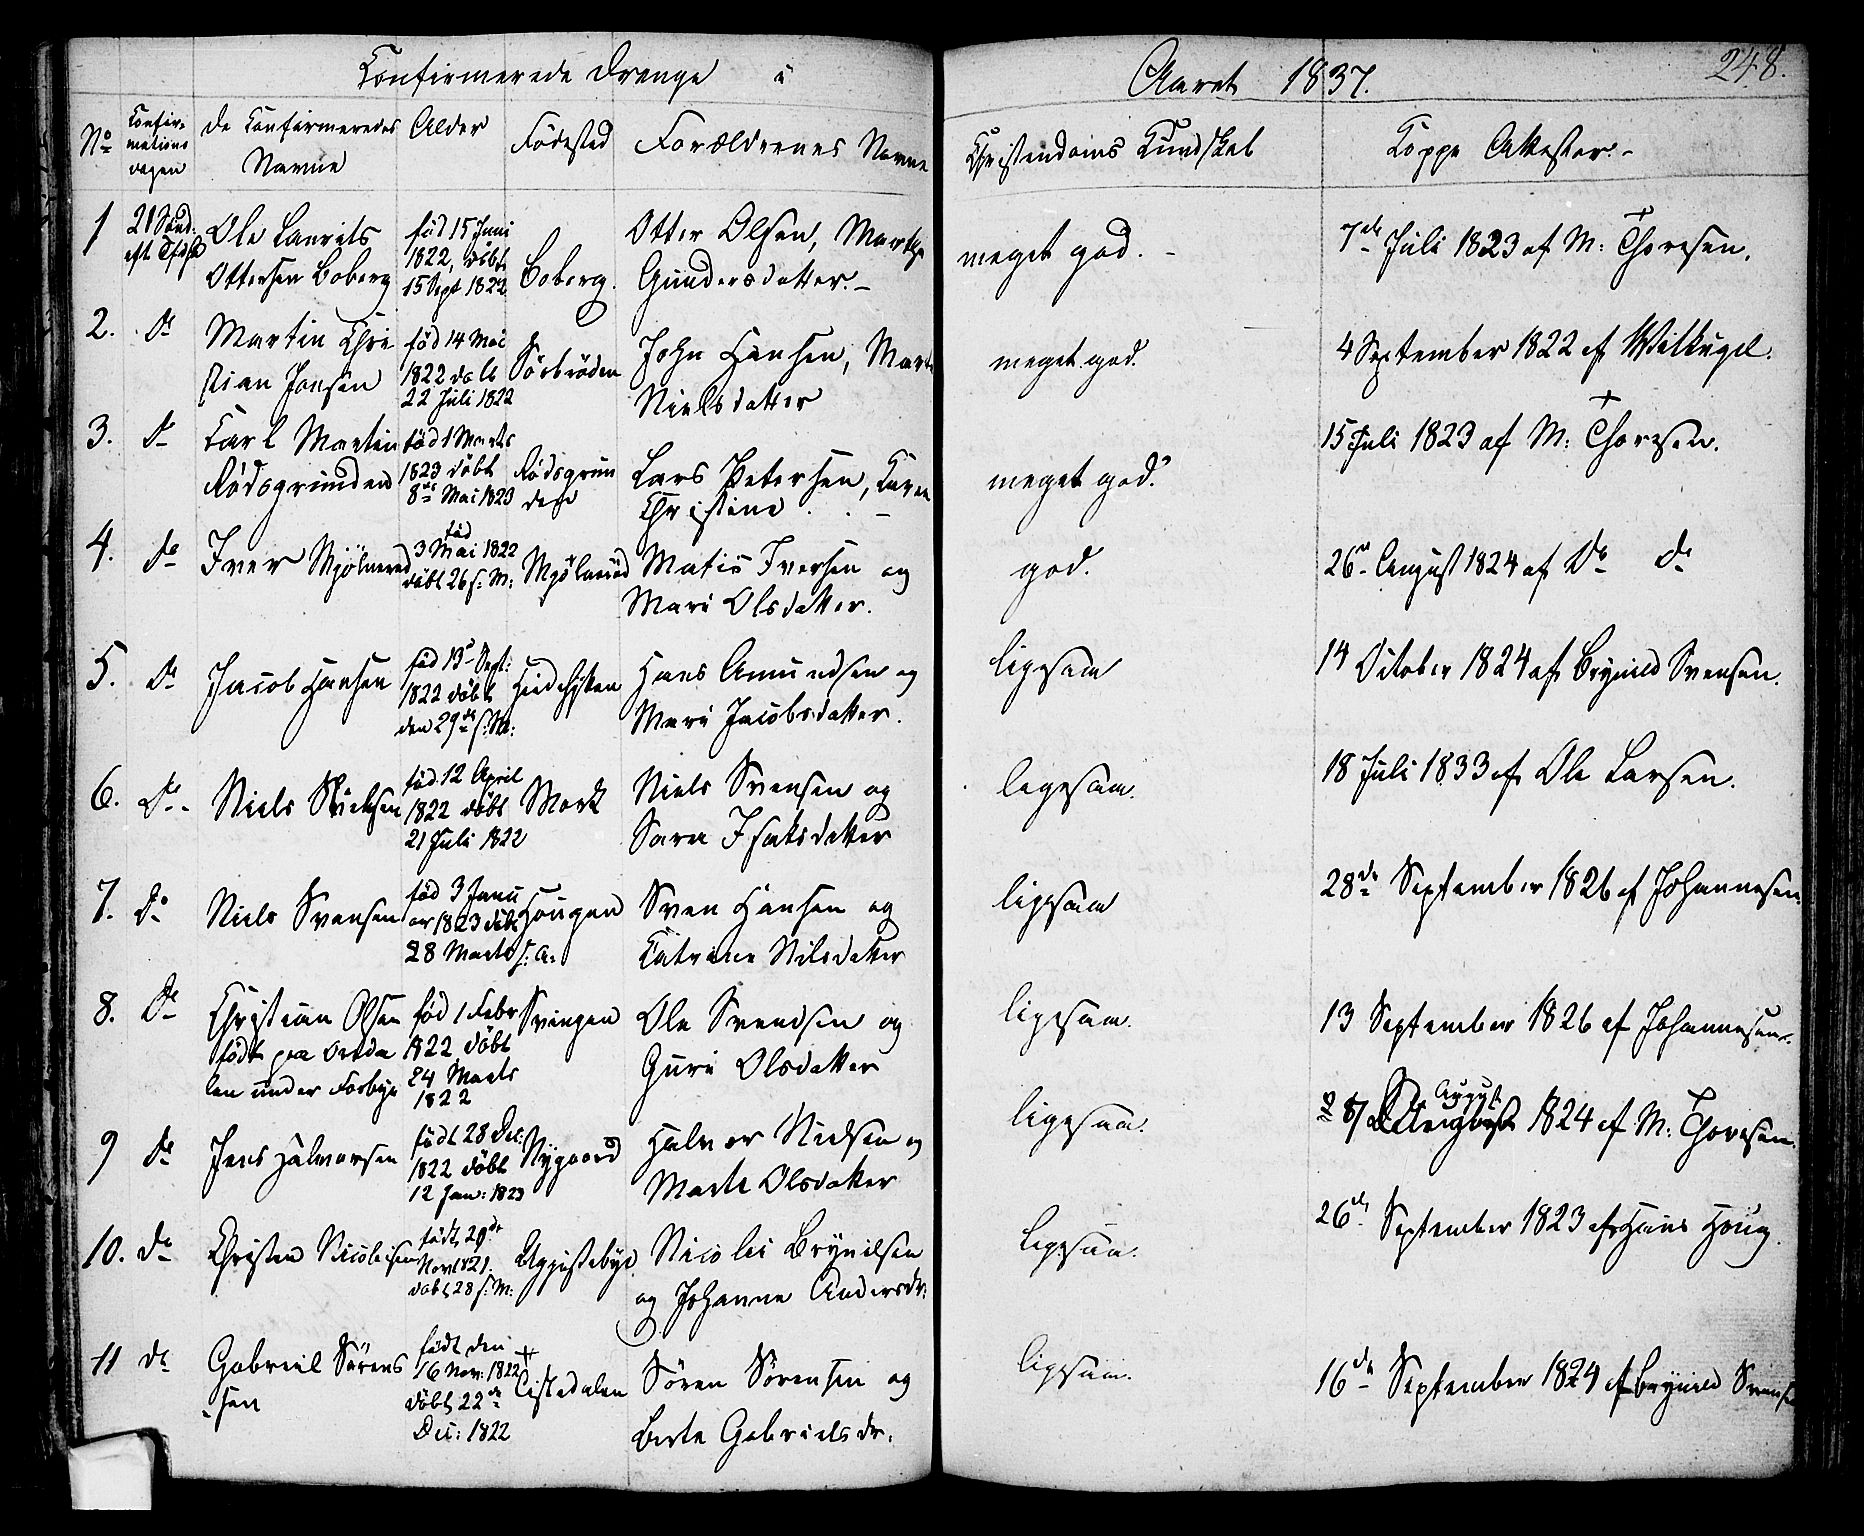 Confirmerede Drenge i Aaret 1837. 248.
No Confirmations dagen De Confirmeredes Navne Alder Födested Forældrenes Navne Christendoms Kundskab Koppe Attester.-
1 21 Sönd: eft Tr Ole Laurits Ottersen Boberg föd 15 Juni 1822, döbt 15 Sept 1822 Boberg. Otter Olsen, Marthe Gundersdatter.- meget god.- 7de Juli 1823 af M: Thoresen.
2. do Martin Christian Jonsen föd 14 Mai 1822 döbt 22 Juli 1822 Sörbröden John Hansen, Marte Nielsdatter meget god. 4 September 1822 af Wilkugel.
3. do Carl Martin Rödsgrunden föd 1 Marts 1823 döbt 8de Mai 1823 Rödsgrunden Lars Petersen, Karen Christine meget god. 15 Juli 1823 af M: Thoresen.
4. do Iver Mjölneröd föd 3 Mai 1822 döbt 26 s: M: Mjölneröd Matis Iversen og Mari Olsdatter. god. 26de August 1824 af Do do
5. do Jacob Hansen föd 13de Sept: 1822 döbt den 29de s: M: Hans Amundsen og Mari Jacobsdatter. ligesaa 14 October 1824 af Brynild Svensen.
6. Do- Niels Nielsen föd 12 April 1822 döbt 21 Juli 1822 Mork Niels Svensen og Sara Isaksdatter ligesaa. 18 Juli 1833 af Ole Larsen.
7. Do Niels Svensen föd 3 Januar 1823 döbt 28 Marts s: A: Hougen Sven Hansen og Catrine Nilsdatter ligesaa 28de September 1826 af Johannesen.
8. Do Christian Olsen födt paa under Forbye föd 1 Febr 1822 döbt 24 Marts 1822 Svingen Ole Svendsen og Guri Olsdatter ligesaa. 13 September 1826 af Johannesen.
9 do Jens Halvorsen födt 28 Dec: 1822 döbt 12 Jan: 1823 Nygaard Halvor Nielsen og Marte Olsdatter ligesaa. 28 August 1824 af M: Thoresen.
10. do Christen Nicolaisen födt 29de Nov 1821. döbt 28 s: M: Nicolai Brynilsen og Johanne Andersdr: ligesaa. 26de September 1823 af Hans Houg.
11 do Gabriel Sörensen födt den 16 Nov: 1822 döbt 22de Dec: 1822 Tistedalen Sören Sörensen og Berte Gabrielsdr. ligesaa. 16de September 1824 af Brynild Svens